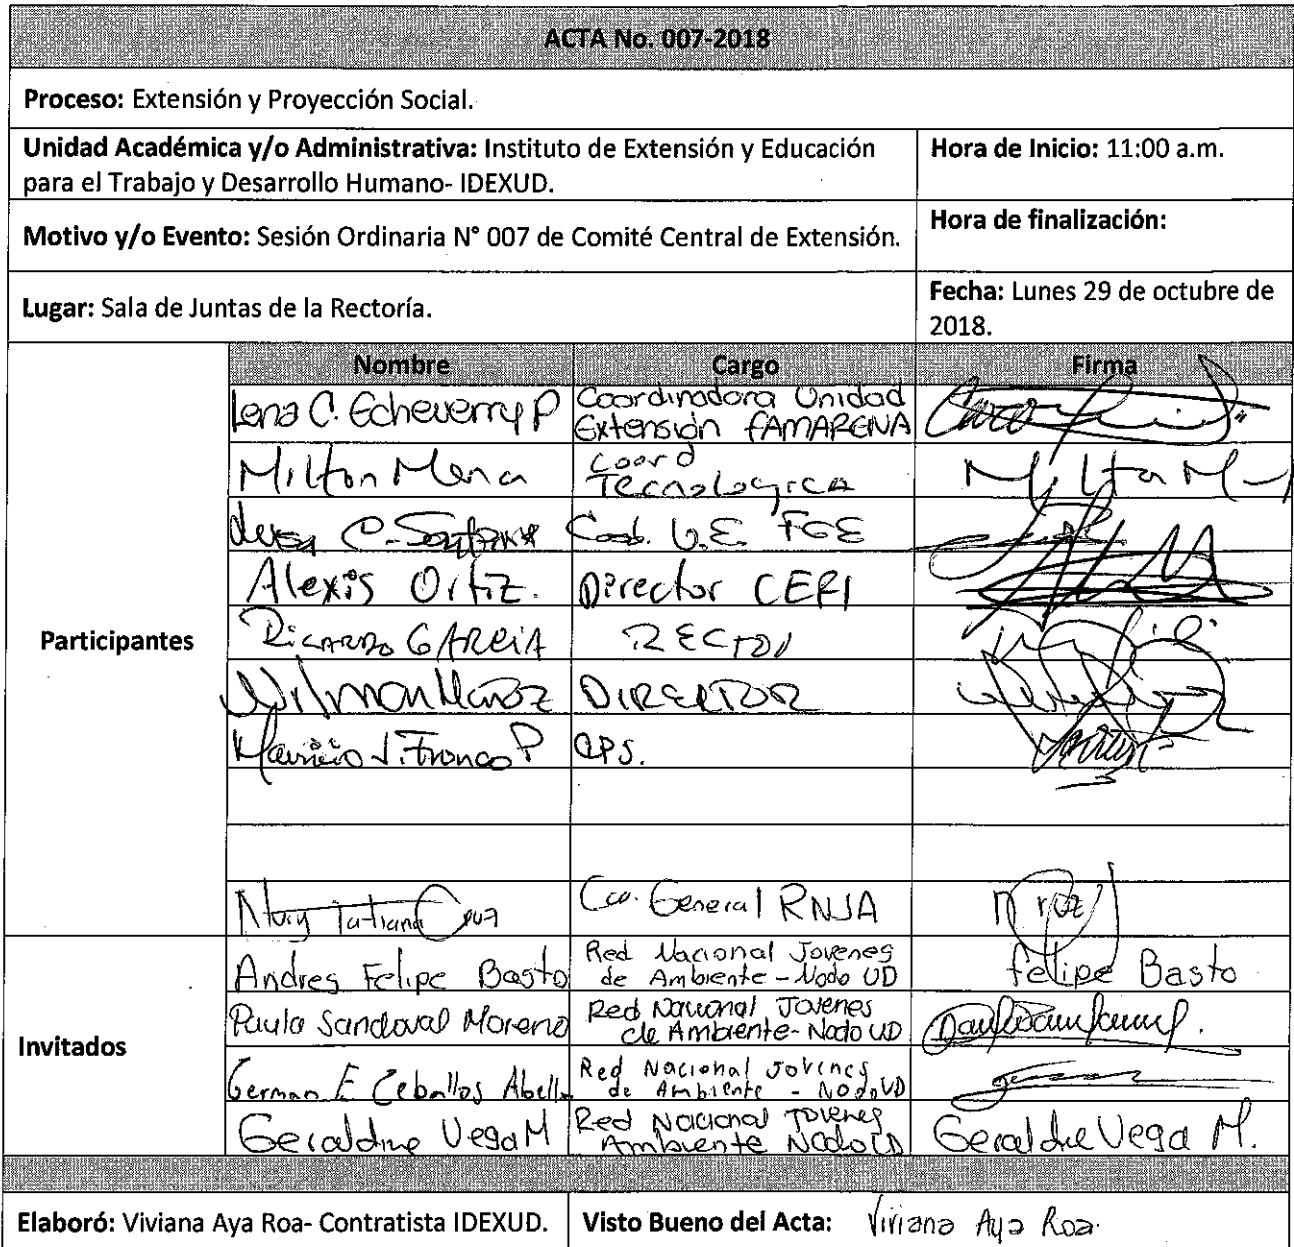 ACTA No. 007-2018
Proceso: Extensión y Proyección Social.
Unidad Académica y/o Administrativa: Instituto de Extensión y Educación
para el Trabajo y Desarrollo Humano- IDEXUD.
Hora de Inicio: 11:00 a.m.
Motivo y/o Evento: Sesión Ordinaria N° 007 de Comité Central de Extensión.
Hora de finalización:
Lugar: Sala de Juntas de la Rectoría.
Fecha: Lunes 29 de octubre de
2018.
Nombre Cargo Firma
Participantes
Lena C. Echeverry P Coordinadora Unidad
Extensión FAMARENA
Milton Mena Coord
Tecnologica Milton M
C. U.E. FGE
Alexis Ortiz. Director CERI
Ricardo GARCIA RECTOR
Wilman Muñoz DIRECTOR
Mauricio J. Franco P CPS.
Nury Tatiana Cruz Coo. General RNJA
Invitados
Andres Felipe Basto Red Nacional Jovenes
de Ambiente - Nodo UD Felipe Basto
Paula Sandoval Moreno Red Nacional Jovenes
de Ambiente - Nodo UD
German E Ceballos Abella Red Nacional Jovenes
de Ambiente - Nodo UD
Geraldine Vega M Red Nacional Jovenes
Ambiente Nodo UD Geraldine Vega M.
Elaboró: Viviana Aya Roa- Contratista IDEXUD. Visto Bueno del Acta: Viviana Aya Roa